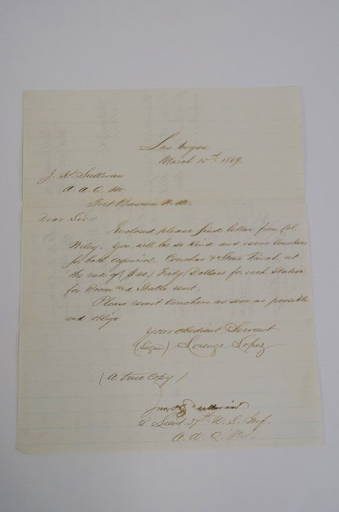 Las Vegas
March 15th 1869.
J. H. Sullivan
A. A. Q. M.
Fort Bascom N. M.
Dear Sir:
Enclosed please find letter from Col.
you will be so kind and
for both at
the rate of ($40) Forty Dollars for each Station
for Room and Stable rent.
Please send Vouchers as soon as possible
and oblige
Your Obedient Servant
(Sign) Lorenzo Lopez
(A True Copy)
Sullivan
Lieut 37th U. S. Inf.
A. A. Q. M.